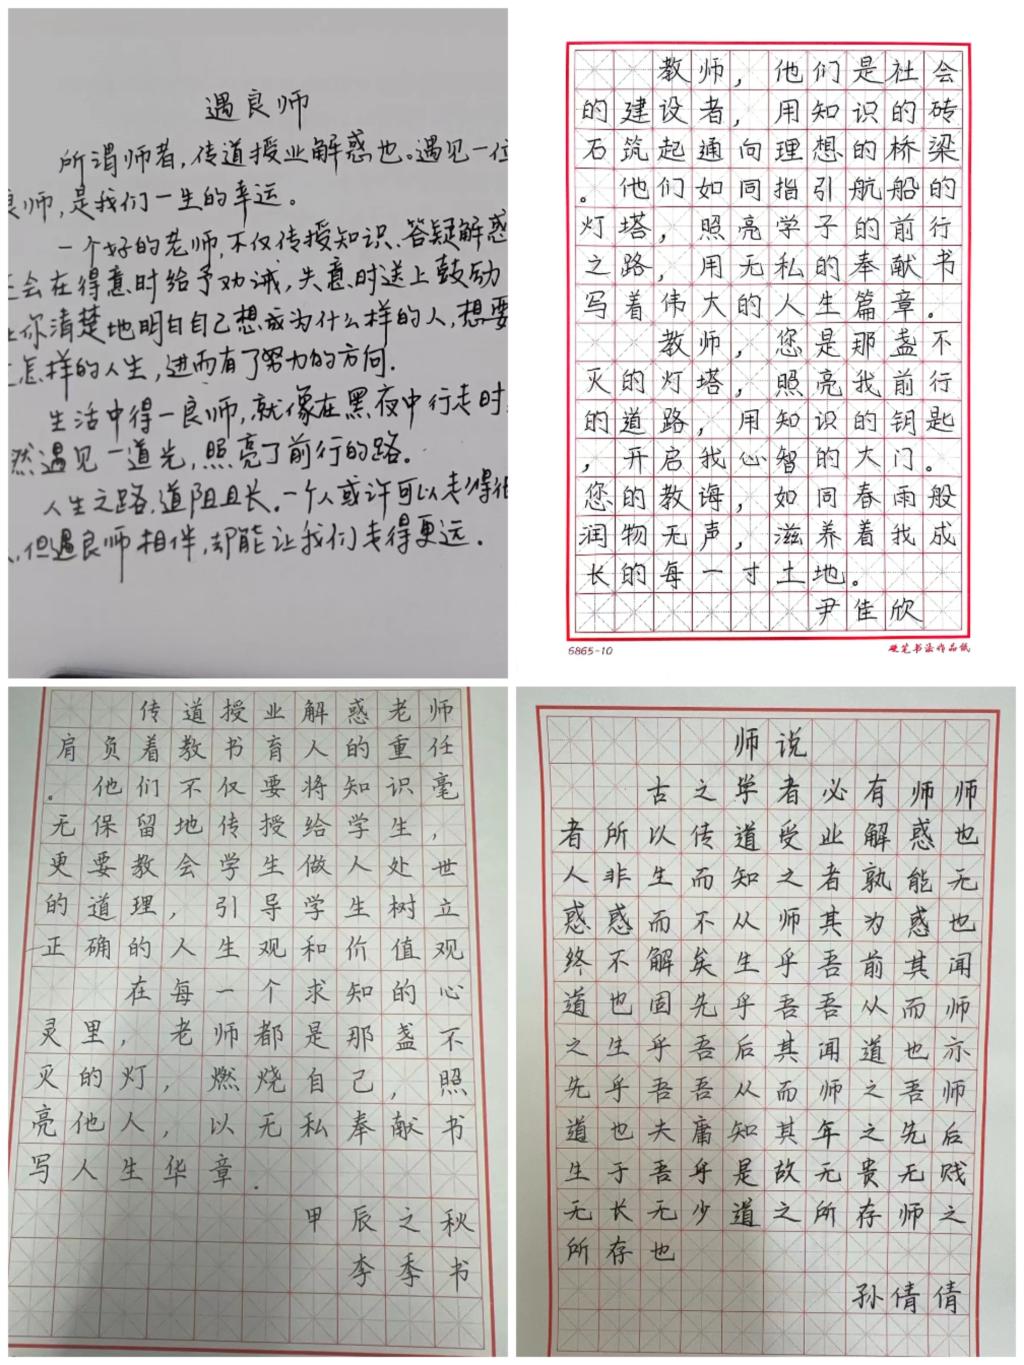 遇良师
所谓师者,传道授业解惑也。遇见一位
良师,是我们一生的幸运。
一个好的老师,不仅传授知识、答疑解惑
会在得意时给予劝诫,失意时送上鼓励
你清楚地明白自己想成为什么样的人,想要
怎样的人生,进而有了努力的方向.
生活中得一良师,就像在黑夜中行走时
然遇见一道光,照亮了前行的路。
人生之路,道阻且长.一个人或许可以走得很
,但遇良师相伴,却能让我们走得更远.
教师,他们是社会
的建设者,用知识的砖
石筑起通向理想的桥梁
。他们如同指引航船的
灯塔,照亮学子的前行
之路,用无私的奉献书
写着伟大的人生篇章。
教师,您是那盏不
灭的灯塔,照亮我前行
的道路,用知识的钥匙
,开启我心智的大门。
您的教诲,如同春雨般
润物无声,滋养着我成
长的每一寸土地。
尹佳欣
6865-10
硬笔书法作品纸
传道授业解惑老师
肩负着教书育人的重任
。他们不仅要将知识毫
无保留地传授给学生,
更要教会学生做人处世
的道理,引导学生树立
正确的人生观和价值观
在每一个求知的心
灵里,老师都是那盏不
灭的灯,燃烧自己,照
亮他人,以无私奉献书
写人生华章.
甲辰之秋
李季书
师说
古之学者必有师师
者所以传道受业解惑也
人非生而知之者孰能无
惑惑而不从师其为惑也
终不解矣生乎吾前其闻
道也固先乎吾吾从而师
之生乎吾后其闻道也亦
先乎吾吾从而师之吾师
道也夫庸知其年之先后
生于吾乎是故无贵无贱
无长无少道之所存师之
所存也
孙倩倩